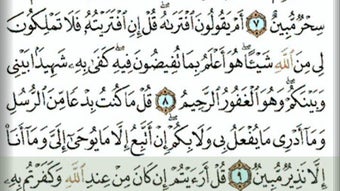 سِحْرٌ مُّبِينٌ ٧ أَمْ يَقُولُونَ ٱفْتَرَىٰهُ قُلْ إِنِ ٱفْتَرَيْتُهُۥ فَلَا تَمْلِكُونَ
لِى مِنَ ٱللَّهِ شَيْـًٔا هُوَ أَعْلَمُ بِمَا تُفِيضُونَ فِيهِ كَفَىٰ بِهِۦ شَهِيدًۢا بَيْنِى
وَبَيْنَكُمْ وَهُوَ ٱلْغَفُورُ ٱلرَّحِيمُ ٨ قُلْ مَا كُنتُ بِدْعًا مِّنَ ٱلرُّسُلِ
وَمَآ أَدْرِى مَا يُفْعَلُ بِى وَلَا بِكُمْ إِنْ أَتَّبِعُ إِلَّا مَا يُوحَىٰٓ إِلَىَّ وَمَآ أَنَا۠
إِلَّا نَذِيرٌ مُّبِينٌ ٩ قُلْ أَرَءَيْتُمْ إِن كَانَ مِنْ عِندِ ٱللَّهِ وَكَفَرْتُم بِهِۦ